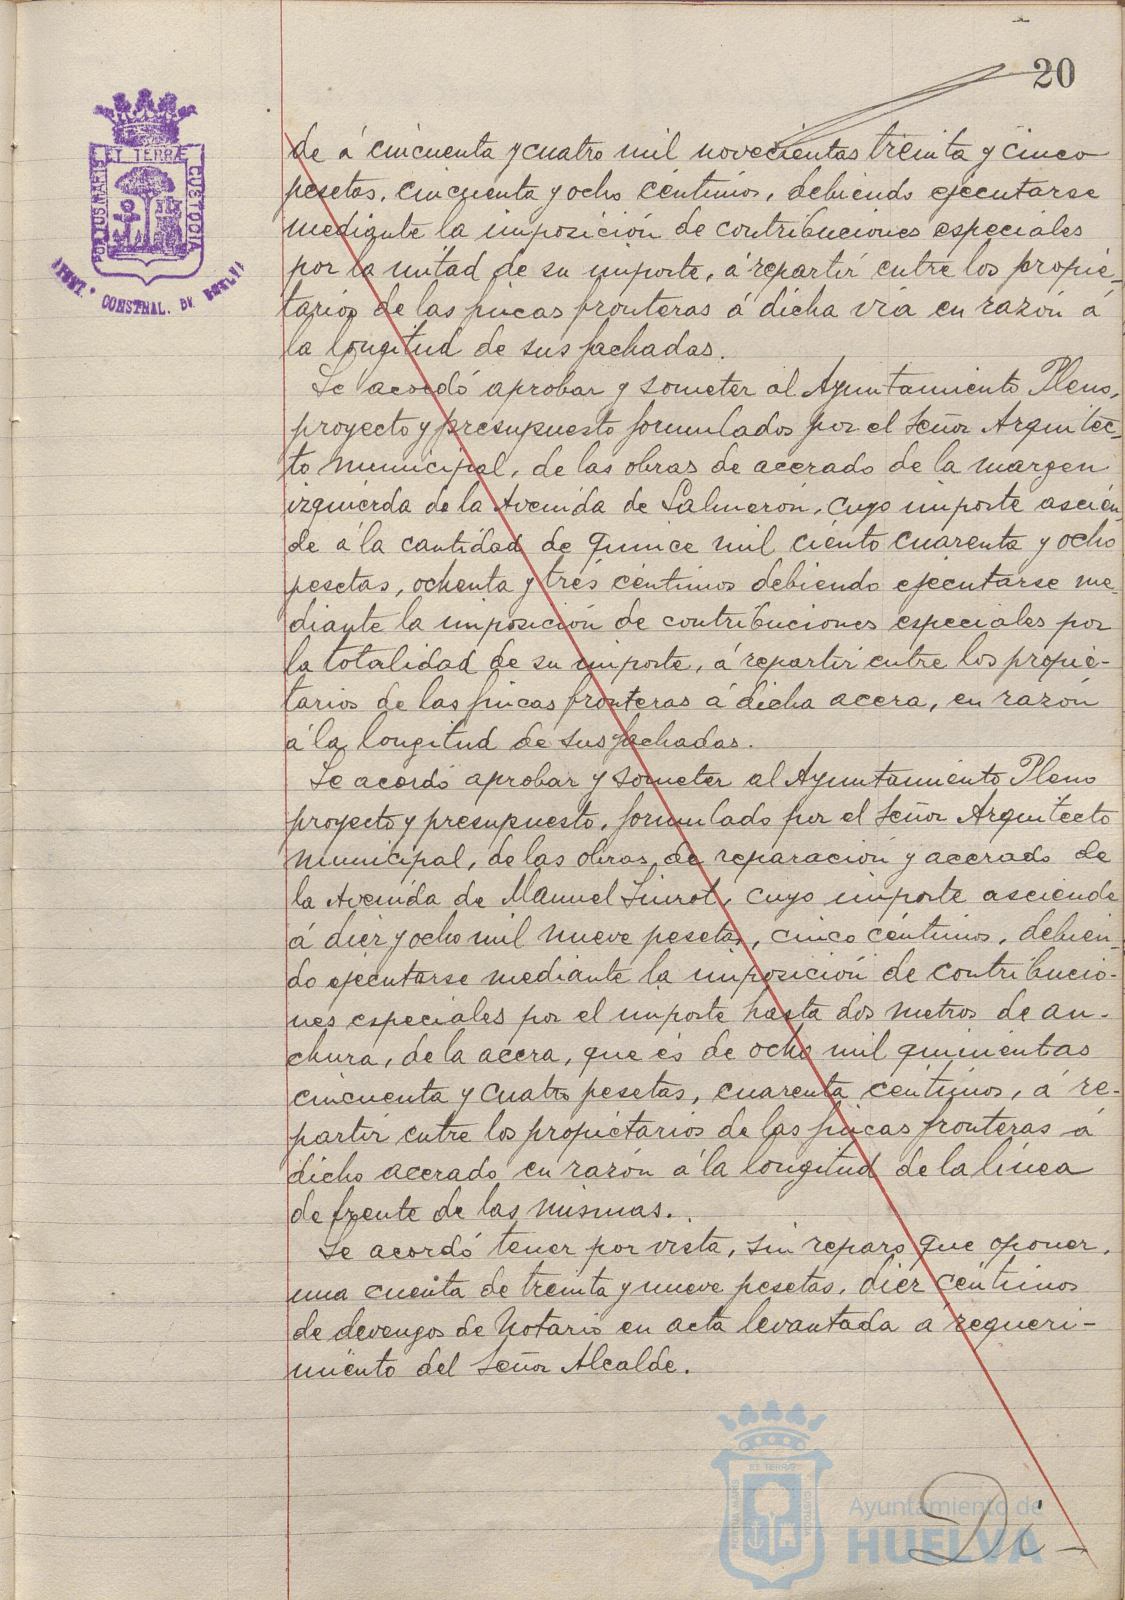 20
PORTUS MARIS ET TERRÆ CUSTODIA
AYUNT. CONSTNAL. DE HUELVA
de á cincuenta y cuatro mil novecientas treinta y cinco
pesetas, cincuenta y ocho céntimos, debiendo ejecutarse
mediante la imposición de contribuciones especiales
por la mitad de su importe, á repartir entre los propie-
tarios de las fincas fronteras á dicha vía en razón á
la longitud de sus fachadas.
Se acordó aprobar y someter al Ayuntamiento Pleno,
proyecto y presupuesto formulados por el Señor Arquitec-
to municipal, de las obras de acerado de la margen
izquierda de la Avenida de Salmerón, cuyo importe ascien-
de á la cantidad de quince mil ciento cuarenta y ocho
pesetas, ochenta y trés céntimos debiendo ejecutarse me-
diante la imposición de contribuciones especiales por
la totalidad de su importe, á repartir entre los propie-
tarios de las fincas fronteras á dicha acera, en razón
á la longitud de sus fachadas.
Se acordó aprobar y someter al Ayuntamiento Pleno
proyecto y presupuesto, formulado por el Señor Arquitecto
municipal, de las obras de reparación y acerado de
la Avenida de Manuel Siurot, cuyo importe asciende
á diez y ocho mil nueve pesetas, cinco céntimos, debien-
do ejecutarse mediante la imposición de contribucio-
nes especiales por el importe hasta dos metros de an-
chura, de la acera, que és de ocho mil quinientas
cincuenta y cuatro pesetas, cuarenta céntimos, á re-
partir entre los propietarios de las fincas fronteras á
dicho acerado en razón á la longitud de la línea
de frente de las mismas.
Se acordó tener por vista, sin reparo que oponer,
una cuenta de treinta y nueve pesetas, diez céntimos
de devengos de Notario en acta levantada á requeri-
miento del Señor Alcalde.
Di-
Ayuntamiento de
HUELVA